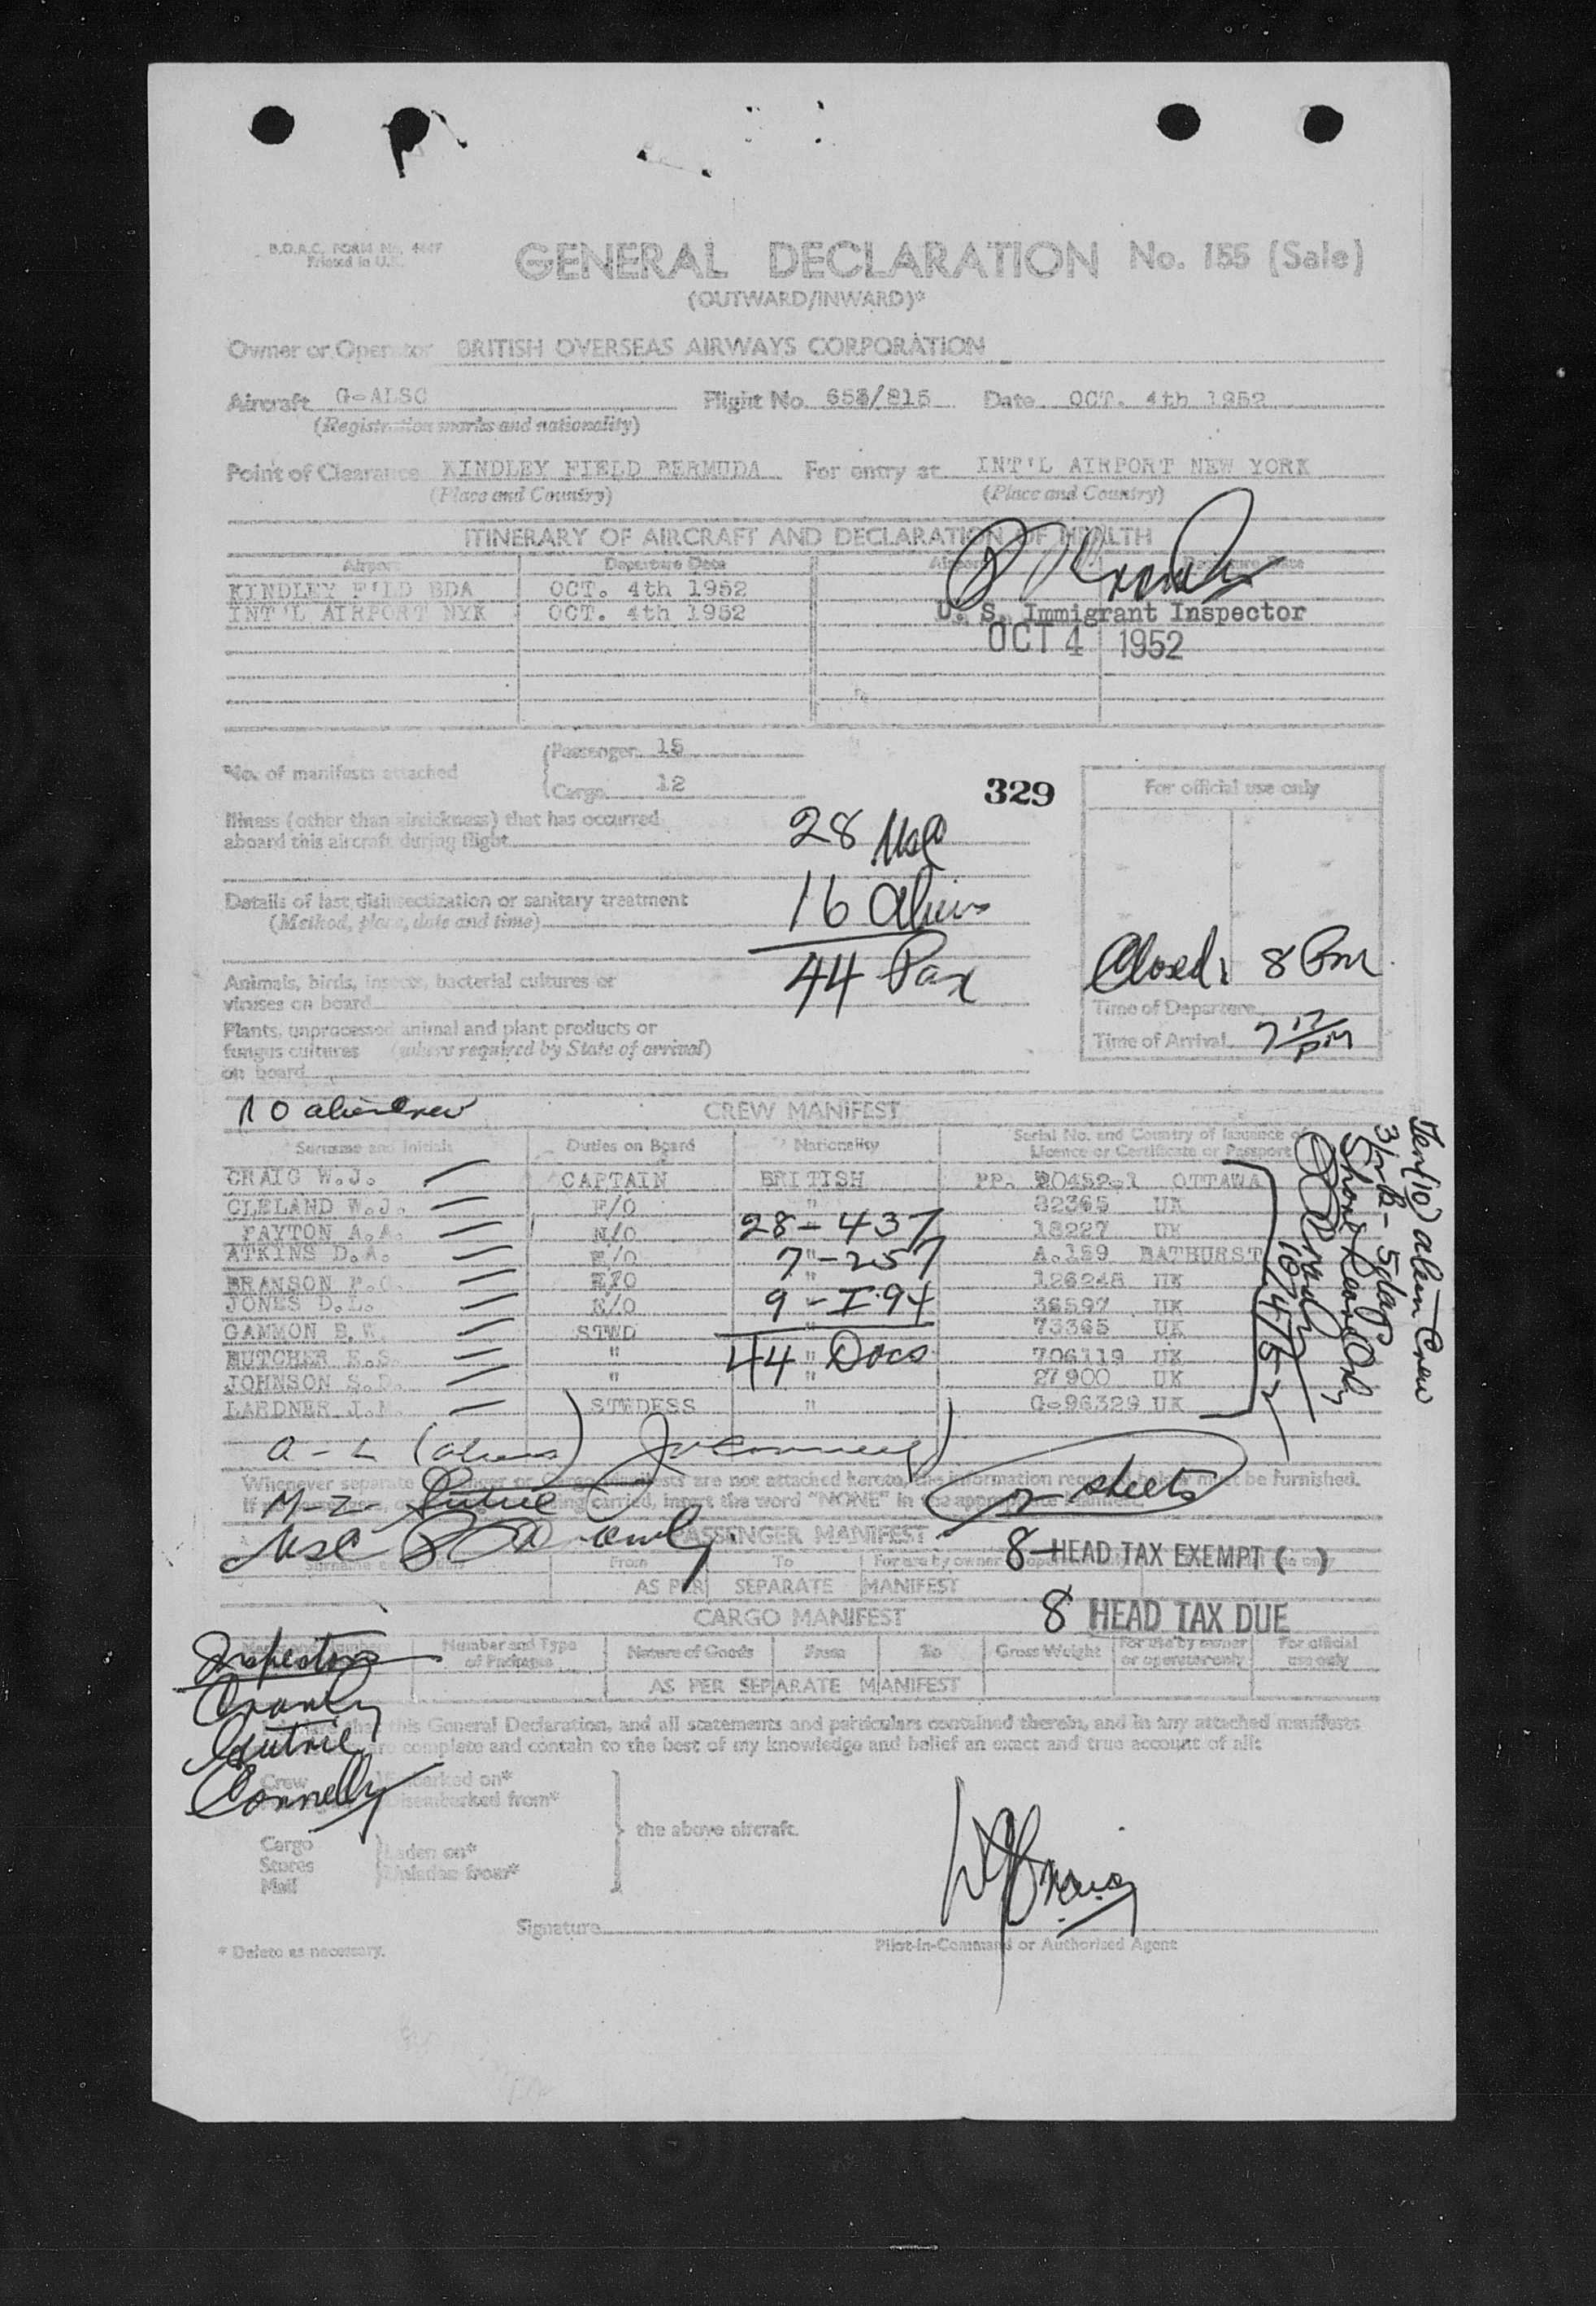 B.O.A.C. FORM No.
Printed in U.K.
GENERAL DECLARATION No. 155 (Sale)
(OUTWARD/INWARD)*
Owner or Operator BRITISH OVERSEAS AIRWAYS CORPORATION
Aircraft G-ALSC Flight No. /815 Date OCT. 4th 1952
(Registration marks and nationality)
Point of Clearance KINDLEY FIELD BERMUDA For entry at INT'L AIRPORT NEW YORK
(Place and Country) (Place and Country)
ITINERARY OF AIRCRAFT AND DECLARATION OF HEALTH
Airport Departure Date Airport Departure Date
KINDLEY F'LD BDA OCT. 4th 1952
INT'L AIRPORT NYK OCT. 4th 1952
U. S. Immigrant Inspector
OCT 4 1952
No. of manifests attached
Passenger 15
Cargo 12
329
For official use only
Illness (other than airsickness) that has occurred
aboard this aircraft during flight
28 USC
Details of last disinsectization or sanitary treatment
(Method, place, date and time)
16 aliens
44 Pax
Closed: 8 Pm
Animals, birds, insects, bacterial cultures or
viruses on board
Time of Departure
Plants, unprocessed animal and plant products or
fungus cultures (where required by State of arrival)
on board
Time of Arrival 7 17/PM
10 alien crew
CREW MANIFEST
Surname and Initials Duties on Board Nationality Serial No. and Country of Issuance of
Licence or Certificate or Passport
CRAIG W.J. CAPTAIN BRITISH PP. 20452-1 OTTAWA
CLELAND W.J. F/O " 32365 UK
PAYTON A.A. N/O 28 - 437 18227 UK
ATKINS D.A. 7 " - 257 A.159 BATHURST
BRANSON F.C. " 126248 UK
JONES D.L. E/O 9 - I-94 36597 UK
GAMMON E.W. STWD " 73365 UK
BUTCHER E.S. " 44 " Docs 706119 UK
JOHNSON S.D. " " 27900 UK
LARDNER J.M. STWDESS " G-96329 UK
Ten (10) alien Crew
10/4/52
A - L (aliens)
Whenever separate Passenger or Cargo Manifests are not attached hereto, the information required below must be furnished.
insert the word "NONE" in the appropriate Manifest.
M-Z - Gutrie
2 sheets
USC
PASSENGER MANIFEST
From To For use by owner or operator only
8 - HEAD TAX EXEMPT ( )
AS PER SEPARATE MANIFEST
CARGO MANIFEST
8 HEAD TAX DUE
Number and Type
of Packages Nature of Goods From To Gross Weight For use by owner
or operator only For official
use only
AS PER SEPARATE MANIFEST
Inspectors
Cranly
Gutrie
Connelly
this General Declaration, and all statements and particulars contained therein, and in any attached manifests
are complete and contain to the best of my knowledge and belief an exact and true account of all:
Crew Embarked on*
Disembarked from*
the above aircraft.
Cargo
Stores
Mail
Laden on*
Unladen from*
WJCraig
Signature
Pilot-in-Command or Authorised Agent
* Delete as necessary.